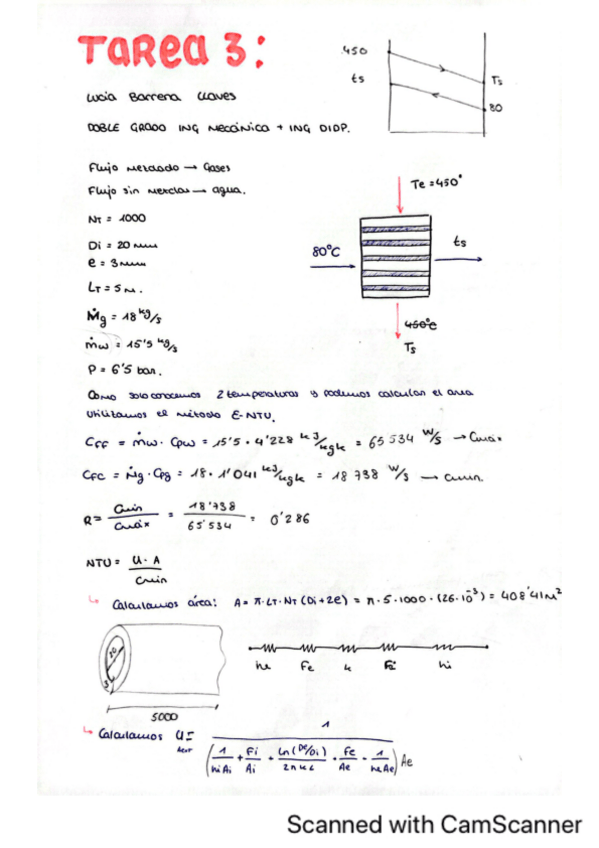 TAREA 3:
450
ts
Ts
80
Lucía Barrera Claves
DOBLE GRADO ING MECÁNICA + ING DIDP.
Flujo mezclado → Gases
Flujo sin mezclas → agua.
NT = 1000
Di = 20 mm
e = 3 mm
LT = 5 m.
Ṁg = 18 kg/s
ṁw = 15'5 kg/s
P = 6'5 bar.
Te = 450°
80°C
ts
450°C
Ts
Como solo conocemos 2 temperaturas y podemos calcular el area
utilizamos el método E-NTU.
CFF = ṁw · Cpw = 15'5 · 4'228 kJ/kgk = 65 534 W/s → Cmáx
CFC = Ṁg · Cpg = 18 · 1'041 kJ/kgk = 18 738 W/s → Cmin.
R = Cmin/Cmáx = 18'738/65'534 = 0'286
NTU = U · A/Cmin
↳ Calculamos área: A = π · LT · NT (Di + 2e) = π · 5 · 1000 · (26 · 10⁻³) = 408'41 m²
20
3
5000
he Fe k Fi hi
↳ Calculamos U = 1/(1/hiAi + Fi/Ai + Ln(De/Di)/2πkL + Fe/Ae + 1/heAe) Ae
Scanned with CamScanner